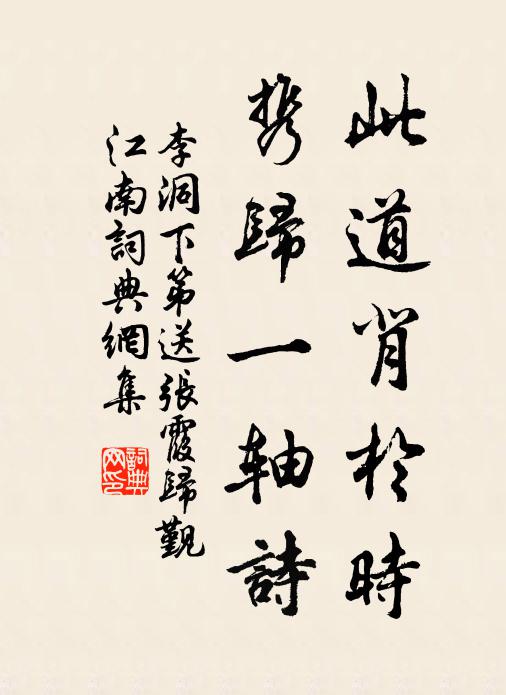 此道背於時
携歸一軸詩
李洞下第送張霞歸覲
江南詞典網集
詞典
网印